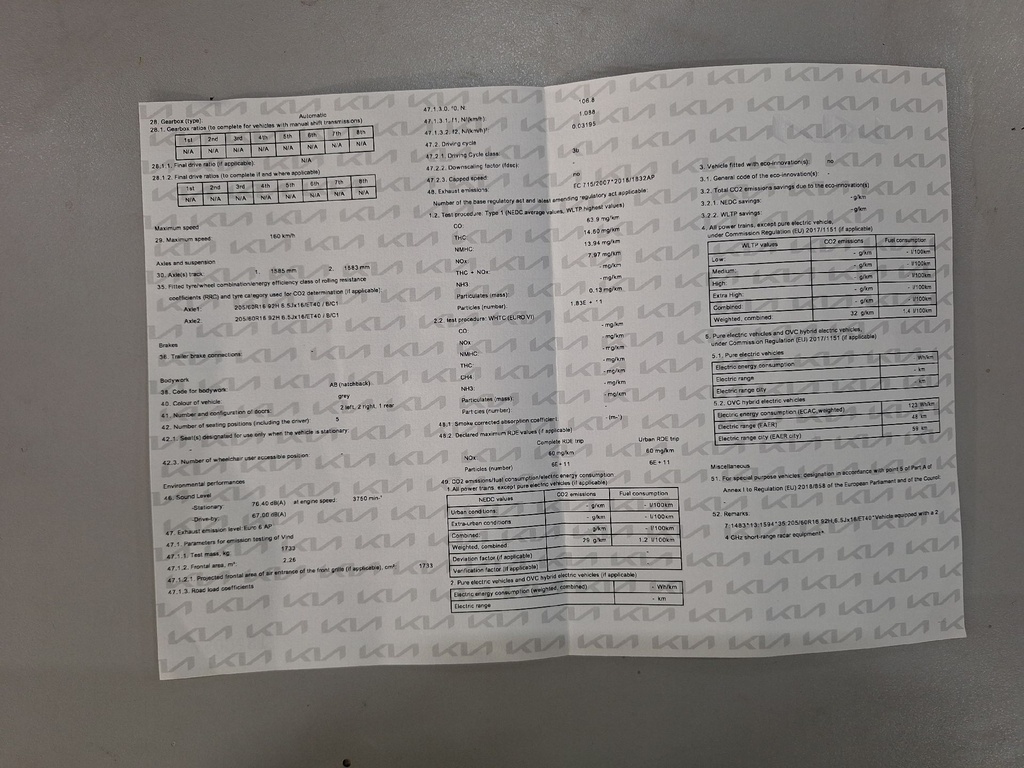 28. Gearbox (type): Automatic
28.1. Gearbox ratios (to complete for vehicles with manual shift transmissions)
1st 2nd 3rd 4th 5th 6th 7th 8th
N/A N/A N/A N/A N/A N/A N/A N/A
28.1.1. Final drive ratio (if applicable): N/A
28.1.2. Final drive ratios (to complete if and where applicable)
1st 2nd 3rd 4th 5th 6th 7th 8th
N/A N/A N/A N/A N/A N/A N/A N/A
Maximum speed
29. Maximum speed: 160 km/h
Axles and suspension
30. Axle(s) track: 1. 1585 mm 2. 1583 mm
35. Fitted tyre/wheel combination/energy efficiency class of rolling resistance
coefficients (RRC) and tyre category used for CO2 determination (if applicable):
Axle1: 205/60R16 92H 6.5Jx16/ET40 / B/C1
Axle2: 205/60R16 92H 6.5Jx16/ET40 / B/C1
Brakes
36. Trailer brake connections: -
Bodywork
38. Code for bodywork: AB (hatchback)
40. Colour of vehicle: grey
41. Number and configuration of doors: 2 left, 2 right, 1 rear
42. Number of seating positions (including the driver): 5
42.1. Seat(s) designated for use only when the vehicle is stationary:
-
42.3. Number of wheelchair user accessible position: -
Environmental performances
46. Sound Level
-Stationary: 76.40 dB(A) at engine speed: 3750 min-¹
-Drive-by: 67.00 dB(A)
47. Exhaust emission level: Euro 6 AP
47.1. Parameters for emission testing of Vind
47.1.1. Test mass, kg: 1733
47.1.2. Frontal area, m²: 2.26
47.1.2.1. Projected frontal area of air entrance of the front grille (if applicable), cm²: 1733
47.1.3. Road load coefficients
47.1.3.0. f0, N: 106.8
47.1.3.1. f1, N/(km/h): 1.088
47.1.3.2. f2, N/(km/h)²: 0.03195
47.2. Driving cycle
47.2.1. Driving Cycle class: 3b
47.2.2. Downscaling factor (fdsc): -
47.2.3. Capped speed: no
48. Exhaust emissions: EC 715/2007*2018/1832AP
Number of the base regulatory act and latest amending regulatory act applicable:
1.2. Test procedure: Type 1 (NEDC average values, WLTP highest values)
CO: 63.9 mg/km
THC: 14.60 mg/km
NMHC: 13.94 mg/km
NOx: 7.97 mg/km
THC + NOx: - mg/km
NH3: - mg/km
Particulates (mass): 0.13 mg/km
Particles (number): 1.83E + 11
2.2. test procedure: WHTC (EURO VI)
CO - mg/km
NOx - mg/km
NMHC: - mg/km
THC: - mg/km
CH4: - mg/km
NH3: - mg/km
Particulates (mass): - mg/km
Particles (number): -
48.1. Smoke corrected absorption coefficient: - (m-¹)
48.2. Declared maximum RDE values (if applicable)
Complete RDE trip Urban RDE trip
NOx: 60 mg/km 60 mg/km
Particles (number): 6E+ 11 6E + 11
49. CO2 emissions/fuel consumption/electric energy consumption
1. All power trains, except pure electric vehicles (if applicable)
NEDC values CO2 emissions Fuel consumption
Urban conditions: - g/km - l/100km
Extra-urban conditions - g/km - l/100km
Combined: - g/km - l/100km
Weighted, combined 29 g/km 1.2 l/100km
Deviation factor (if applicable)
Verification factor (if applicable)
2. Pure electric vehicles and OVC hybrid electric vehicles (if applicable)
Electric energy consumption (weighted, combined) - Wh/km
Electric range - km
3. Vehicle fitted with eco-innovation(s): no
3.1. General code of the eco-innovation(s): -
3.2. Total CO2 emissions savings due to the eco-innovation(s)
3.2.1. NEDC savings: - g/km
3.2.2. WLTP savings: - g/km
4. All power trains, except pure electric vehicle,
under Commission Regulation (EU) 2017/1151 (if applicable)
WLTP values CO2 emissions Fuel consumption
Low: - g/km - l/100km
Medium: - g/km - l/100km
High: - g/km - l/100km
Extra High: - g/km - l/100km
Combined: - g/km - l/100km
Weighted, combined: 32 g/km 1.4 l/100km
5. Pure electric vehicles and OVC hybrid electric vehicles,
under Commission Regulation (EU) 2017/1151 (if applicable)
5.1. Pure electric vehicles
Electric energy consumption - Wh/km
Electric range - km
Electric range city - km
5.2. OVC hybrid electric vehicles
Electric energy consumption (ECAC,weighted) 123 Wh/km
Electric range (EAER) 48 km
Electric range city (EAER city) 59 km
Miscellaneous
51. For special purpose vehicles: designation in accordance with point 5 of Part A of
Annex I to Regulation (EU) 2018/858 of the European Parliament and of the Council:
-
52. Remarks:
7:1483*13:1594*35:205/60R16 92H,6.5Jx16/ET40*Vehicle equipped with a 2
4 GHz short-range radar equipment*